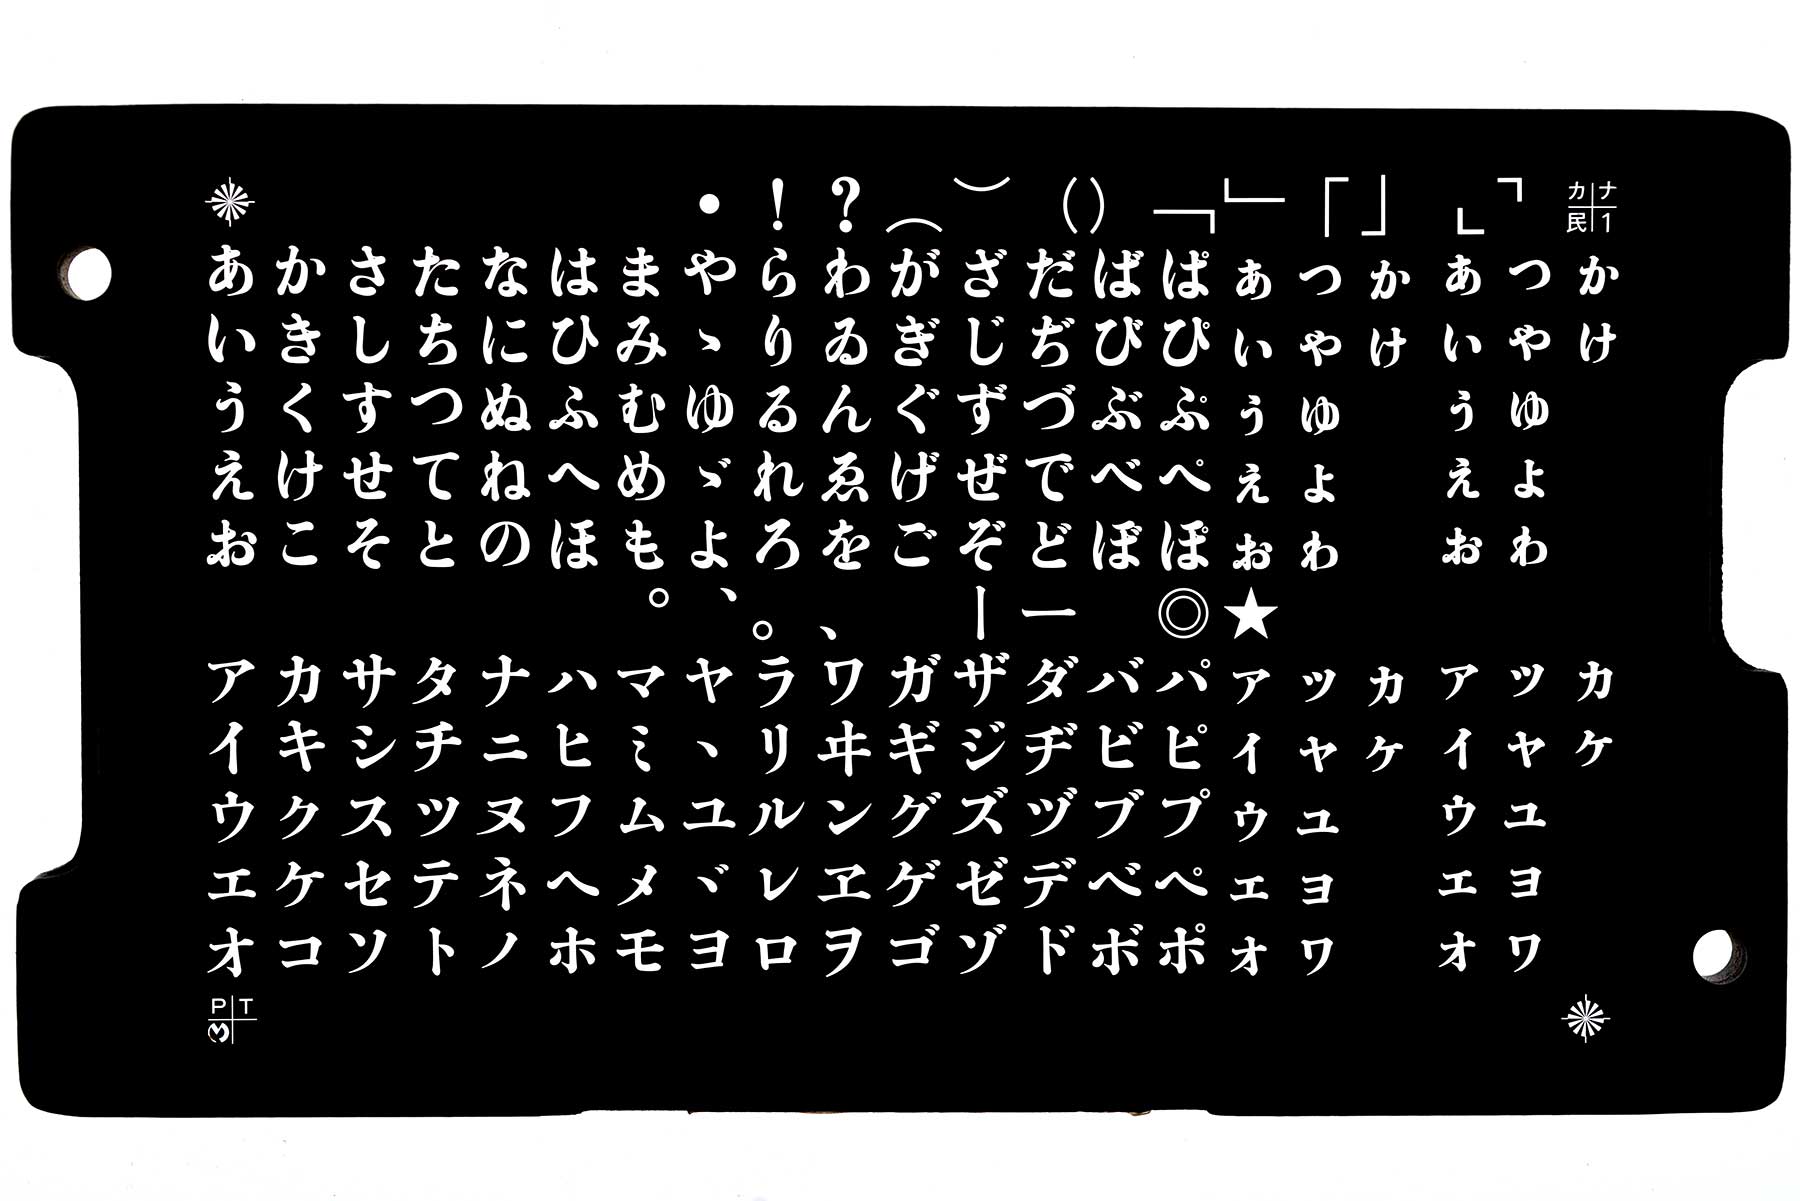 ・ ！ ？ ︵ ︶ （） ﹁ ﹂ 「 」 ｣ ｢ カナ 民1
あ か さ た な は ま や ら わ が ざ だ ば ぱ ぁ っ ゕ ぁ っ ゕ
い き し ち に ひ み ゝ り ゐ ぎ じ ぢ び ぴ ぃ ゃ ゖ ぃ ゃ ゖ
う く す つ ぬ ふ む ゆ る ん ぐ ず づ ぶ ぷ ぅ ゅ ぅ ゅ
え け せ て ね へ め ゞ れ ゑ げ ぜ で べ ぺ ぇ ょ ぇ ょ
お こ そ と の ほ も よ ろ を ご ぞ ど ぼ ぽ ぉ ゎ ぉ ゎ
。 、 。 、 ｜ ー ◎ ★
ア カ サ タ ナ ハ マ ヤ ラ ワ ガ ザ ダ バ パ ァ ッ ヵ ァ ッ ヵ
イ キ シ チ ニ ヒ ミ ヽ リ ヰ ギ ジ ヂ ビ ピ ィ ャ ヶ ィ ャ ヶ
ウ ク ス ツ ヌ フ ム ユ ル ン グ ズ ヅ ブ プ ゥ ュ ゥ ュ
エ ケ セ テ ネ ヘ メ ヾ レ ヱ ゲ ゼ デ ベ ペ ェ ョ ェ ョ
オ コ ソ ト ノ ホ モ ヨ ロ ヲ ゴ ゾ ド ボ ポ ォ ヮ ォ ヮ
PT